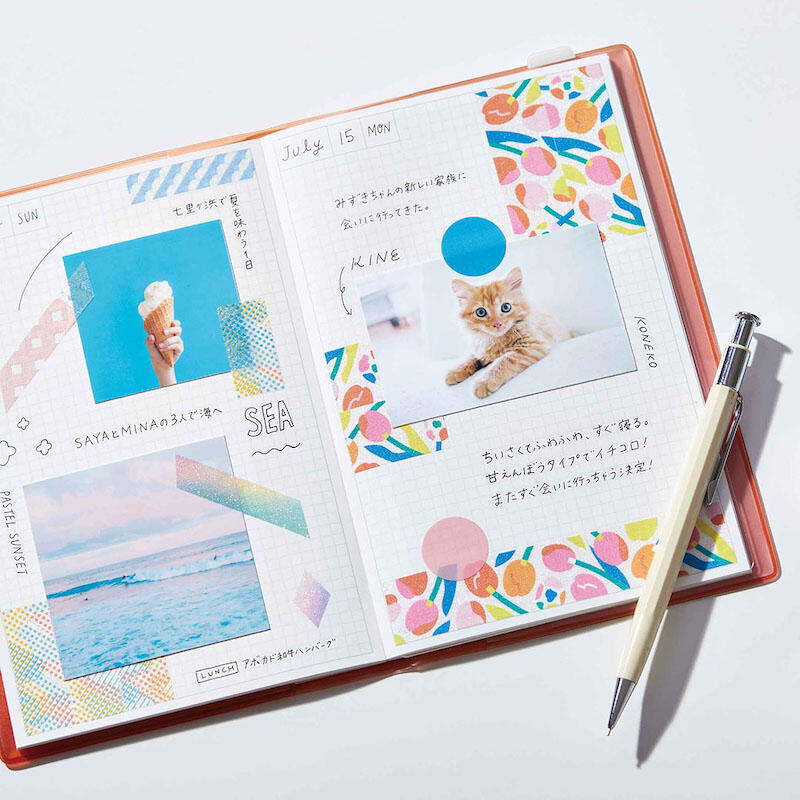 SUN
七里ヶ浜で夏を味わう1日
SAYAとMINAの3人で海へ
SEA
PASTEL SUNSET
LUNCH アボカド和牛ハンバーグ
July 15 MON
みずきちゃんの新しい家族に
会いに行ってきた。
KINE
KONEKO
ちいさくてふわふわ、すぐ寝る。
甘えんぼうタイプでイチコロ!
またすぐ会いに行っちゃう決定!